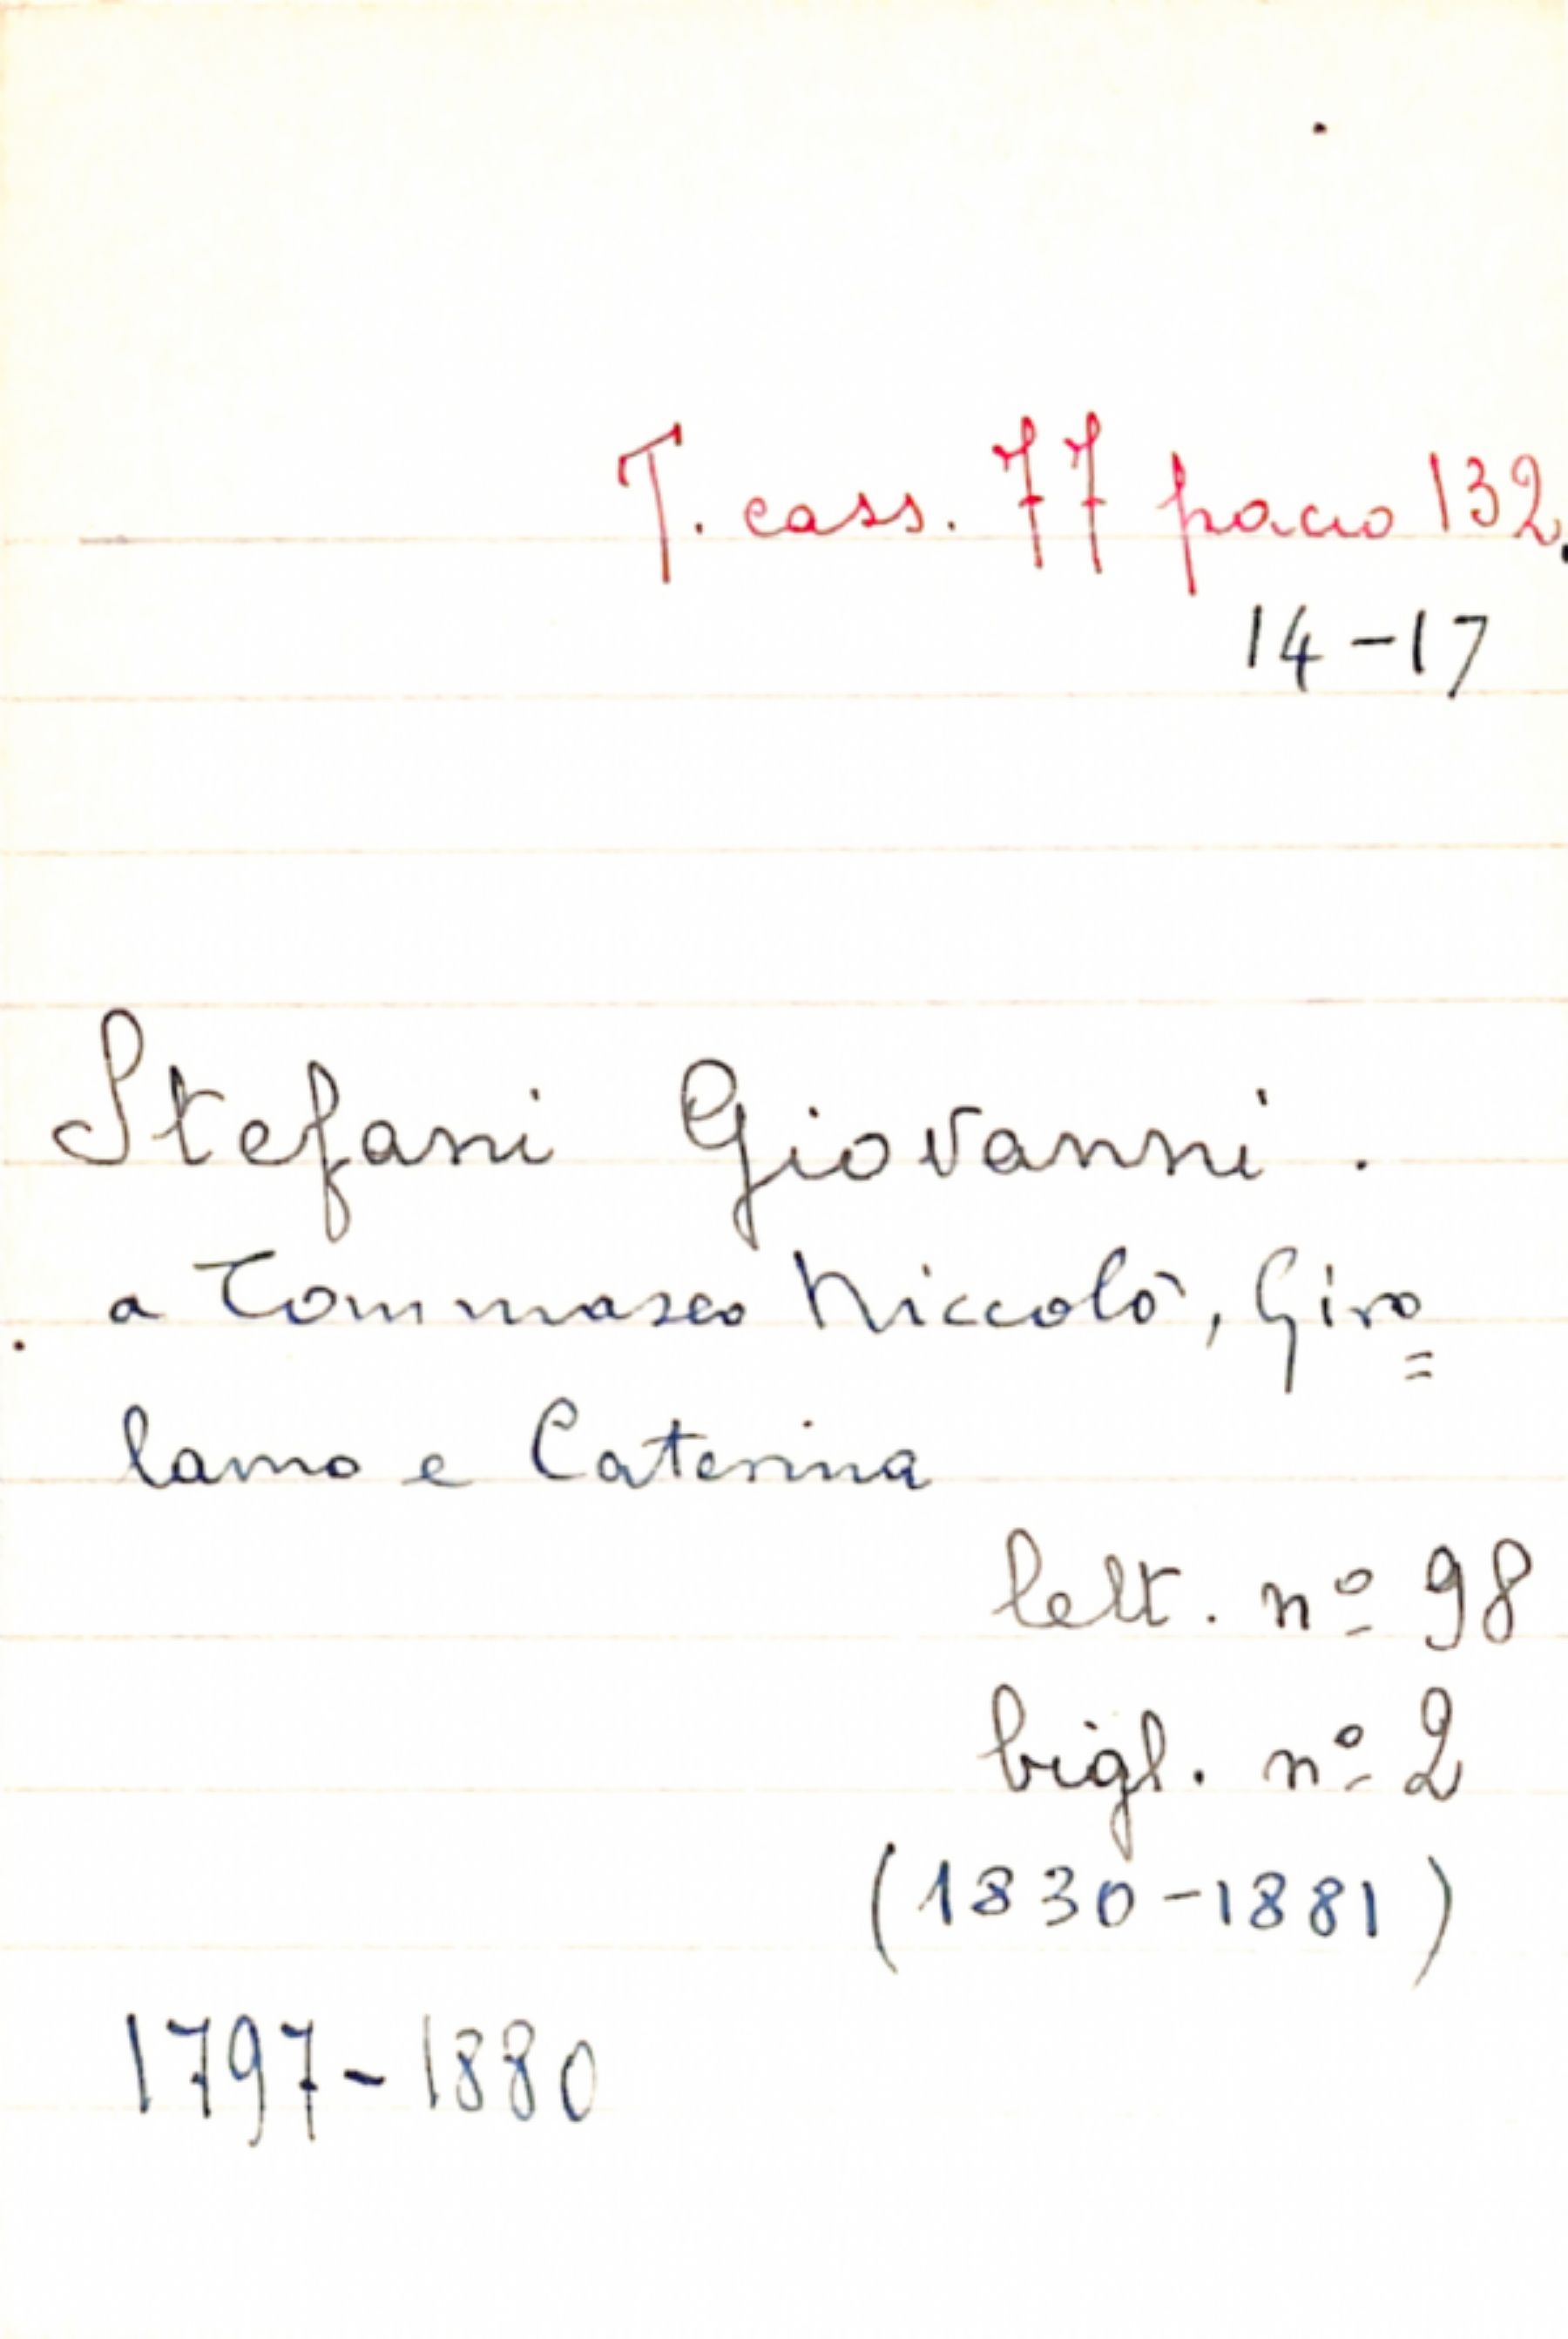 T. cass. 77 pacco 132.
14-17
Stefani Giovanni.
a Tommaseo Niccolò, Giro=
lamo e Caterina
lett. nº 98
bigl. nº 2
(1830-1881)
1797-1880